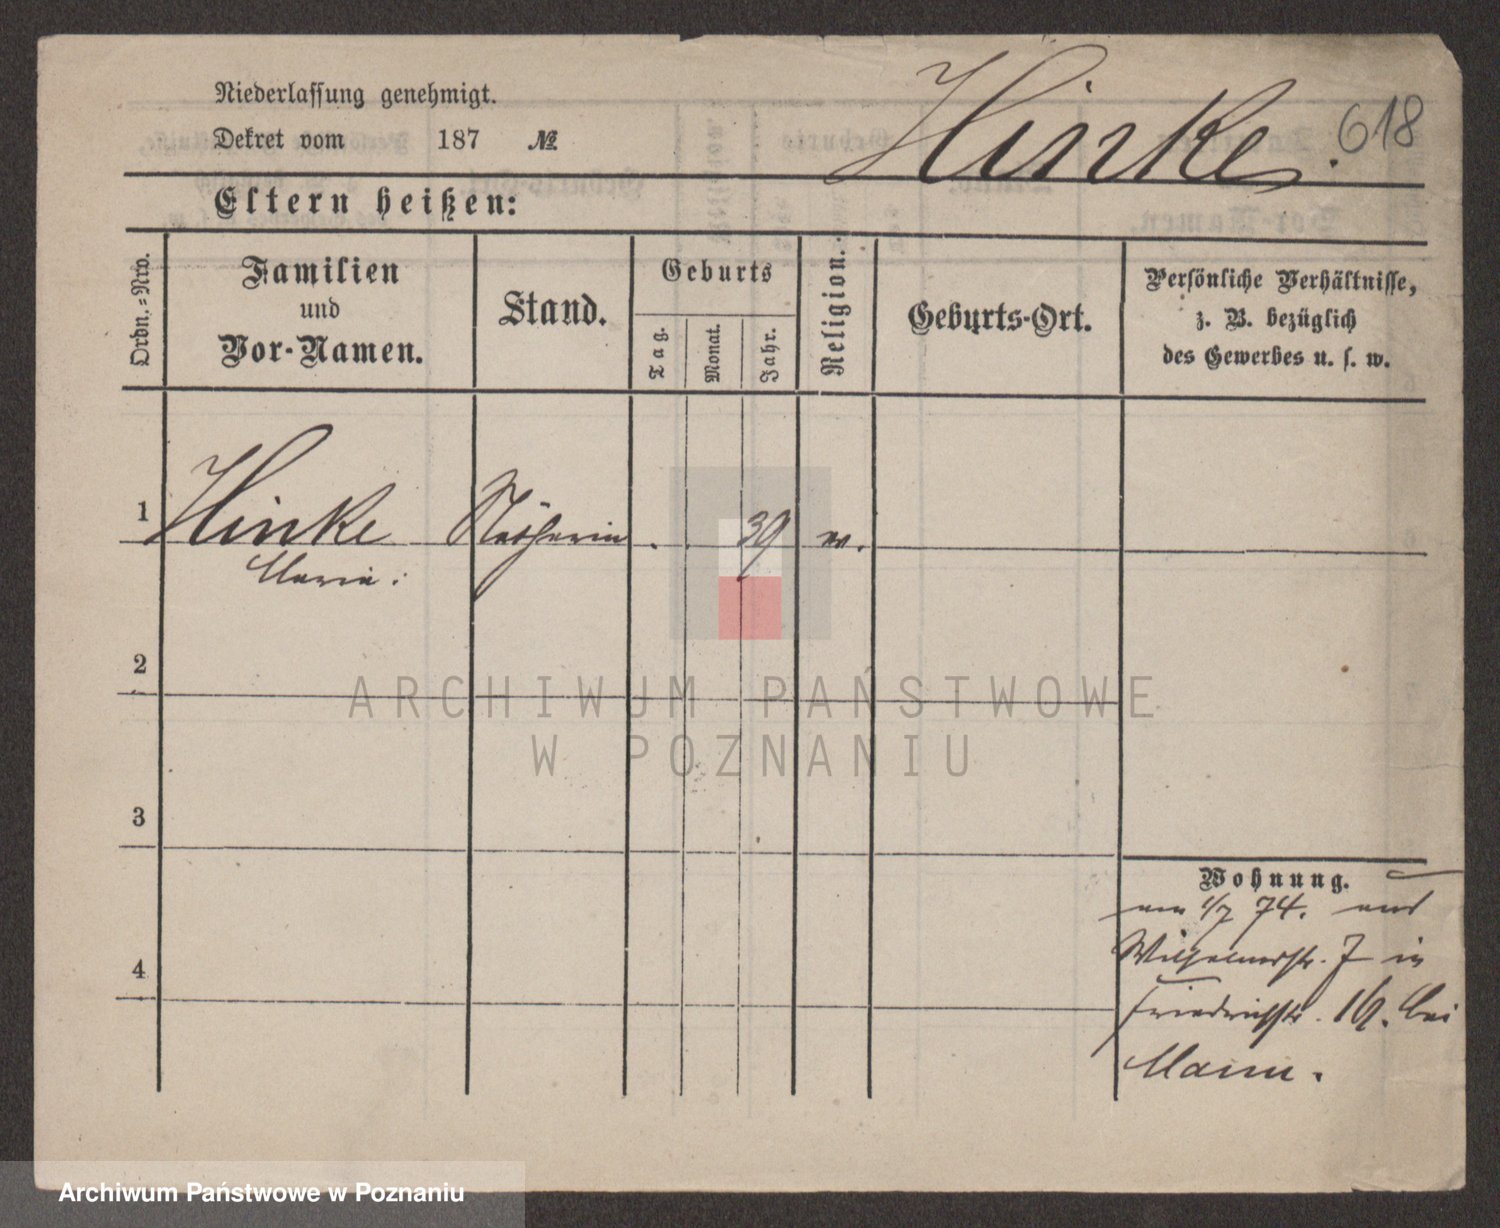 Niederlassung genehmigt.
Dekret vom 187 №
Hinke. 618
Eltern heißen:
Ordn.-Nro.
Familien
und
Vor-Namen.
Stand.
Geburts
Tag.
Monat.
Jahr.
Religion.
Geburts-Ort.
Persönliche Verhältnisse,
z. B. bezüglich
des Gewerbes u. s. w.
1 Hinke Näherin 39
Maria.
2
ARCHIWUM PAŃSTWOWE
W POZNANIU
3
Wohnung.
am 1/7 74. aus
4
Wilhelmstr. 7 in
Friedrichstr. 19. bei
Mann.
Archiwum Państwowe w Poznaniu